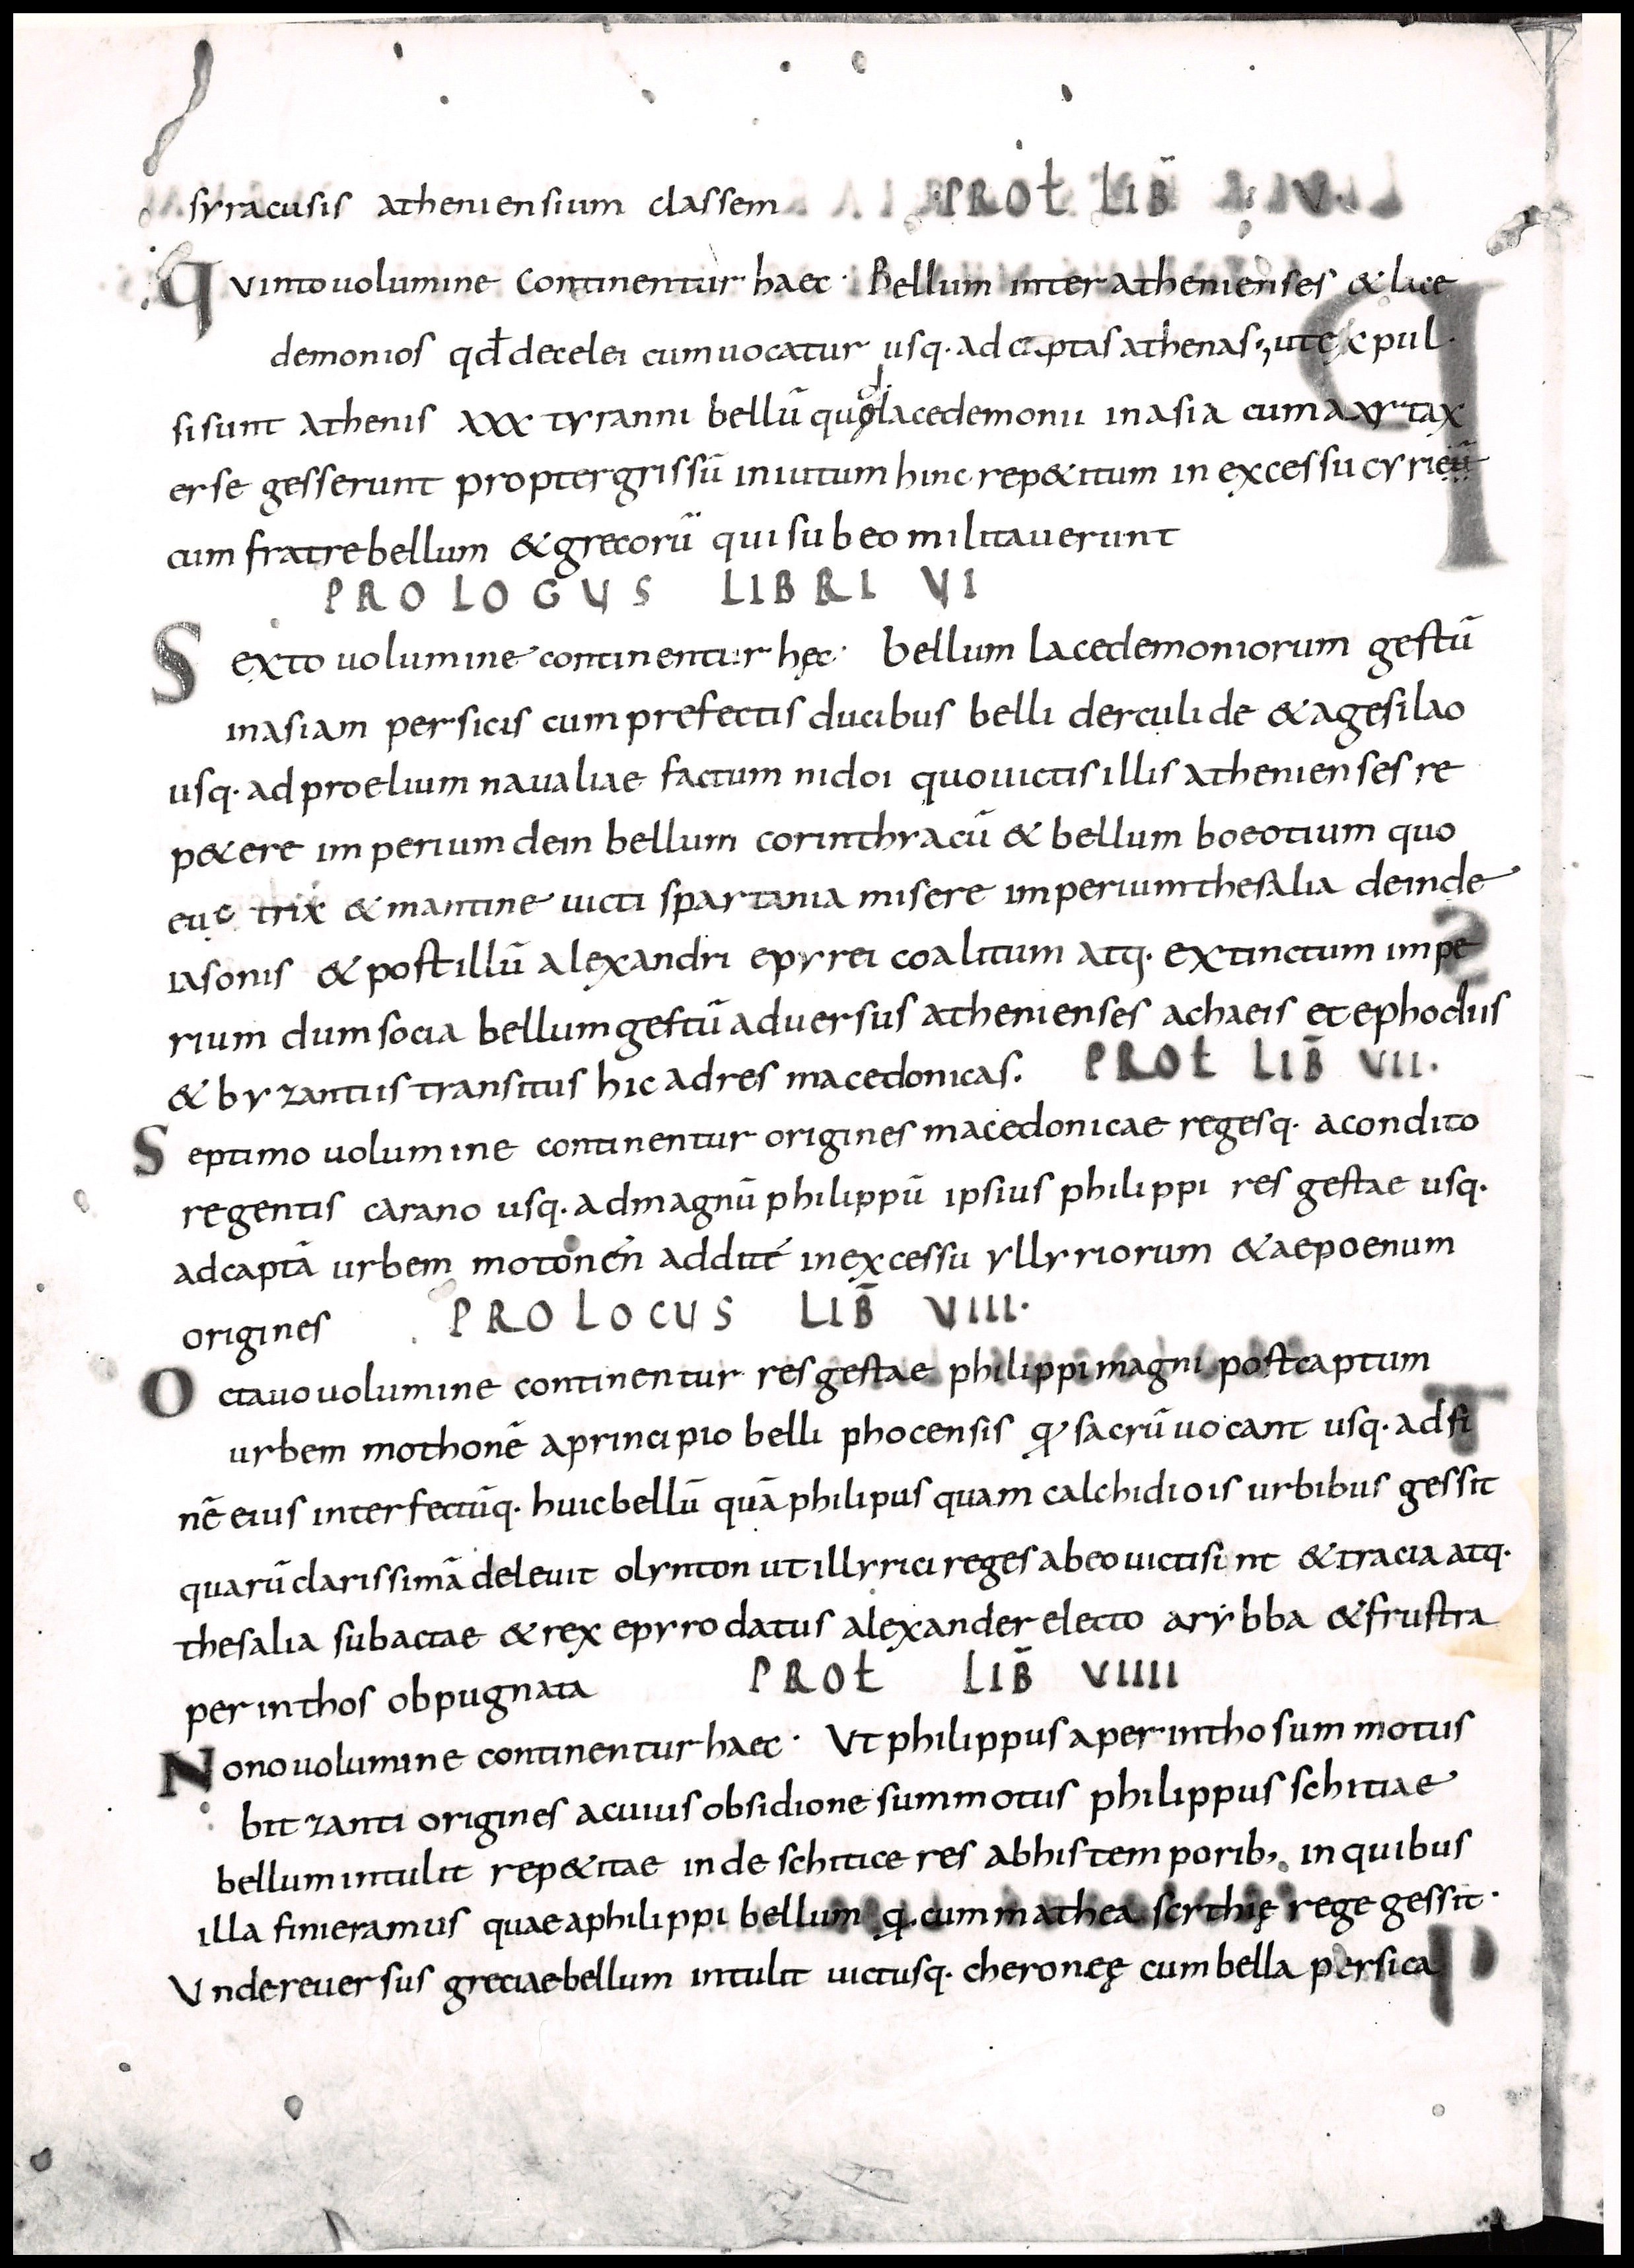 syracusis atheniensium classem PROŁ LIB̄ V.
Qvinto uolumine continentur haec· Bellum inter athenienses & lace
demonios qd̄ decelei cum uocatur usq· ad captas athenas ut expul
si sunt athenis xxx tyranni bellū quod lacedemonii in asia cum artax
erse gesserunt propter grissū iniutum hinc rep&itum in excessu cyri eū
cum fratre bellum & grecorū qui sub eo militauerunt
PROLOGUS LIBRI VI
Sexto uolumine continentur hęc· bellum lacedemoniorum gestū
in asiam persicis cum prefectis ducibus belli derculide & agesilao
usq· ad proelium naualiae factum nidoi quo uictis illis athenienses re
p&ere imperium dein bellum corinthracū & bellum boeotium quo
euc trix & mantine uicti spartania misere imperium thesalia deinde
iasonis & post illū alexandri epyrei coalitum atq· extinctum impe
rium dum socia bellum gestū aduersus athenienses achaeis et ephodiis
& byzantiis transitus hic ad res macedonicas. PROŁ LIB̄ VII.
Septimo uolumine continentur origines macedonicae regesq· a condito
regentis carano usq· ad magnū philippū ipsius philippi res gestae usq·
ad captā urbem motonen addite in excessu yllyriorum & aepoenum
origines PROLOCUS LIB̄ VIIII·
Octauo uolumine continentur res gestae philippi magni post captum
urbem mothonē a principio belli phocensis q sacrū uocant usq· ad fi
nē eius interfectūq· huic bellū quā philipus quam calchidiois urbibus gessit
quarū clarissimā deleuit olynton ut illyrici reges ab eo uicti sint & tracia atq·
thesalia subactae & rex epyro datus alexander electo arybba & frustra
perinthos obpugnata PROŁ LIB̄ VIIII
Nono uolumine continentur haec· Ut philippus a perintho summotus
bitzanti origines a cuius obsidione summotus philippus schitiae
bellum intulit rep&itae inde schitice res ab his temporib; in quibus
illa finieramus quae a philippi bellum q cum mathea scythię rege gessit·
Vnde reuersus greciae bellum intulit uictusq· cheronęę cum bella persica